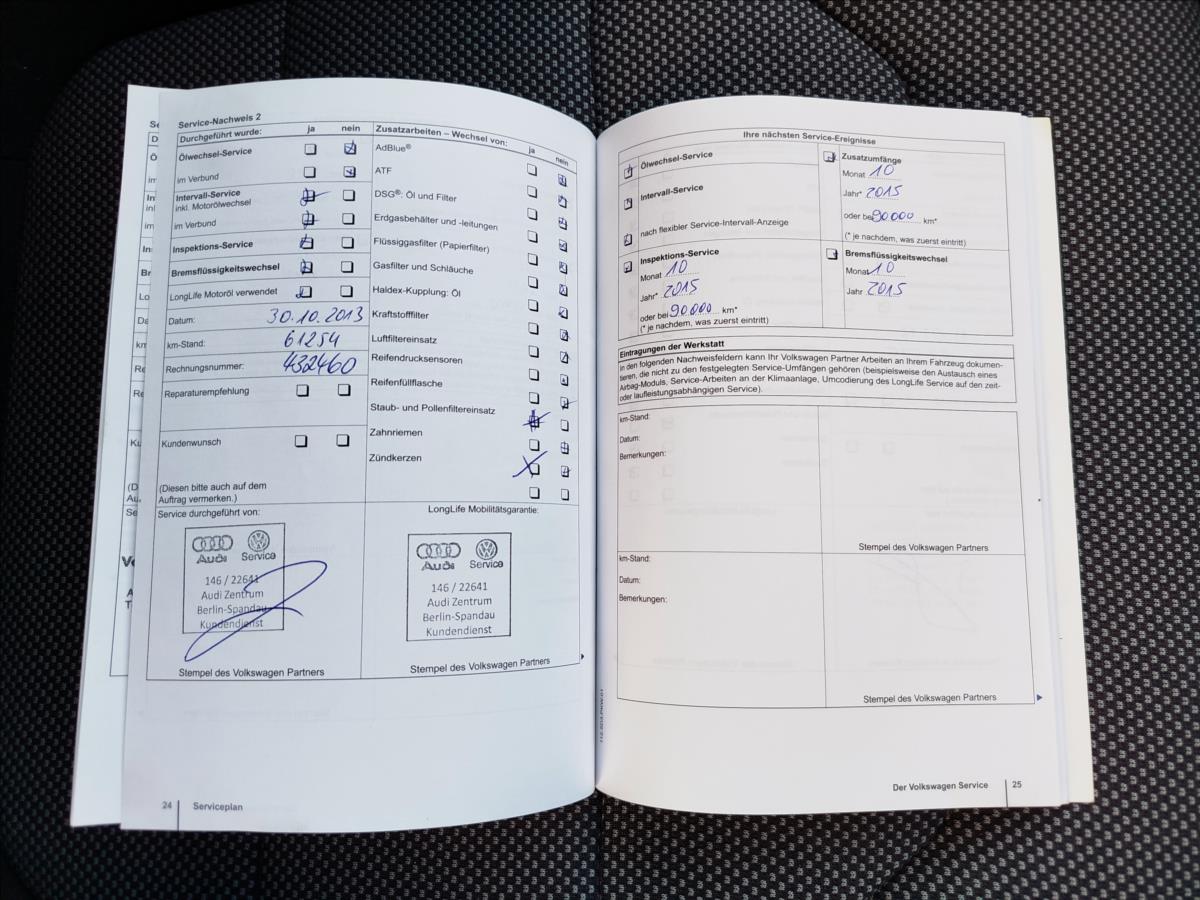 Service-Nachweis 2
Durchgeführt wurde: ja nein
Ölwechsel-Service
im Verbund
Intervall-Service
inkl. Motorölwechsel
im Verbund
Inspektions-Service
Bremsflüssigkeitswechsel
LongLife Motoröl verwendet
Datum: 30.10.2013
km-Stand: 61254
Rechnungsnummer: 432460
Reparaturempfehlung
Kundenwunsch
(Diesen bitte auch auf dem
Auftrag vermerken.)
Zusatzarbeiten – Wechsel von: ja nein
AdBlue®
ATF
DSG®: Öl und Filter
Erdgasbehälter und -leitungen
Flüssiggasfilter (Papierfilter)
Gasfilter und Schläuche
Haldex-Kupplung: Öl
Kraftstofffilter
Luftfiltereinsatz
Reifendrucksensoren
Reifenfüllflasche
Staub- und Pollenfiltereinsatz
Zahnriemen
Zündkerzen
Service durchgeführt von:
Audi Service
146 / 22641
Audi Zentrum
Berlin-Spandau
Kundendienst
Stempel des Volkswagen Partners
LongLife Mobilitätsgarantie:
Audi Service
146 / 22641
Audi Zentrum
Berlin-Spandau
Kundendienst
Stempel des Volkswagen Partners
24 Serviceplan
Ihre nächsten Service-Ereignisse
Ölwechsel-Service
Intervall-Service
nach flexibler Service-Intervall-Anzeige
Inspektions-Service
Monat 10
Jahr* 2015
oder bei 90000 km*
(* je nachdem, was zuerst eintritt)
Zusatzumfänge
Monat 10
Jahr* 2015
oder bei 90000 km*
(* je nachdem, was zuerst eintritt)
Bremsflüssigkeitswechsel
Monat 10
Jahr 2015
Eintragungen der Werkstatt
In den folgenden Nachweisfeldern kann Ihr Volkswagen Partner Arbeiten an Ihrem Fahrzeug dokumen-
tieren, die nicht zu den festgelegten Service-Umfängen gehören (beispielsweise den Austausch eines
Airbag-Moduls, Service-Arbeiten an der Klimaanlage, Umcodierung des LongLife Service auf den zeit-
oder laufleistungsabhängigen Service).
km-Stand:
Datum:
Bemerkungen:
Stempel des Volkswagen Partners
km-Stand:
Datum:
Bemerkungen:
Stempel des Volkswagen Partners
Der Volkswagen Service 25